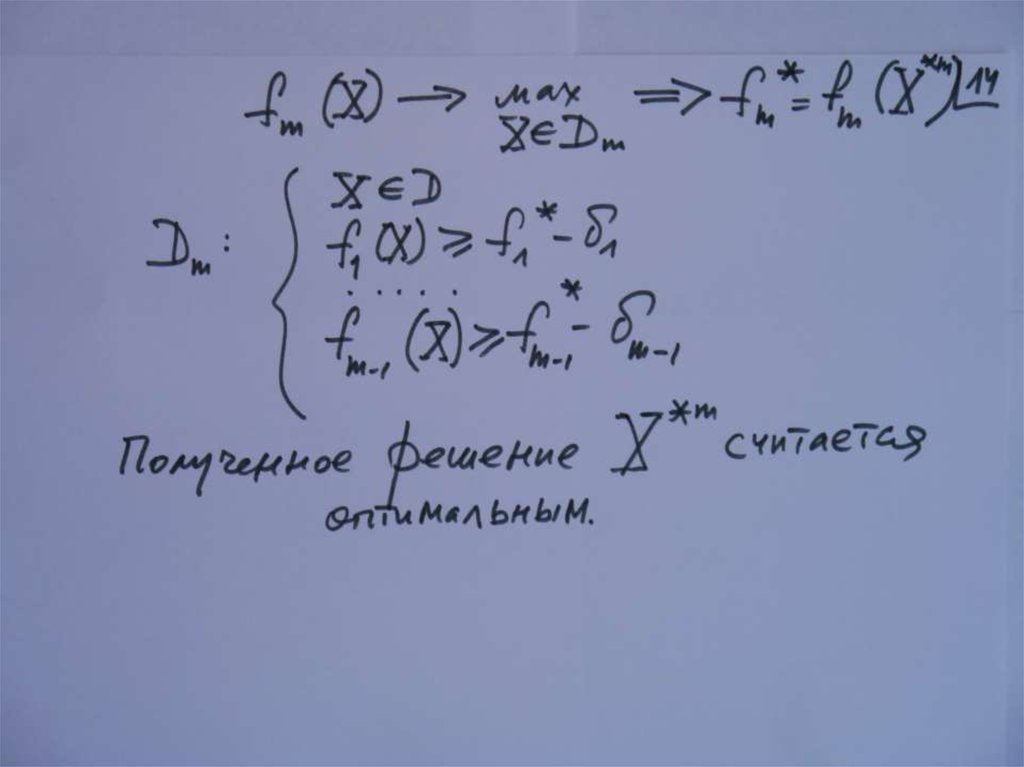 fₘ (X) → max ⇒ fₘ* = fₘ (X*ᵐ) 14
X∈Dₘ
Dₘ :
X ∈ D
f₁ (X) ≥ f₁* - δ₁
. . . . .
fₘ₋₁ (X) ≥ fₘ₋₁* - δₘ₋₁
Полученное решение X*ᵐ считается
оптимальным.